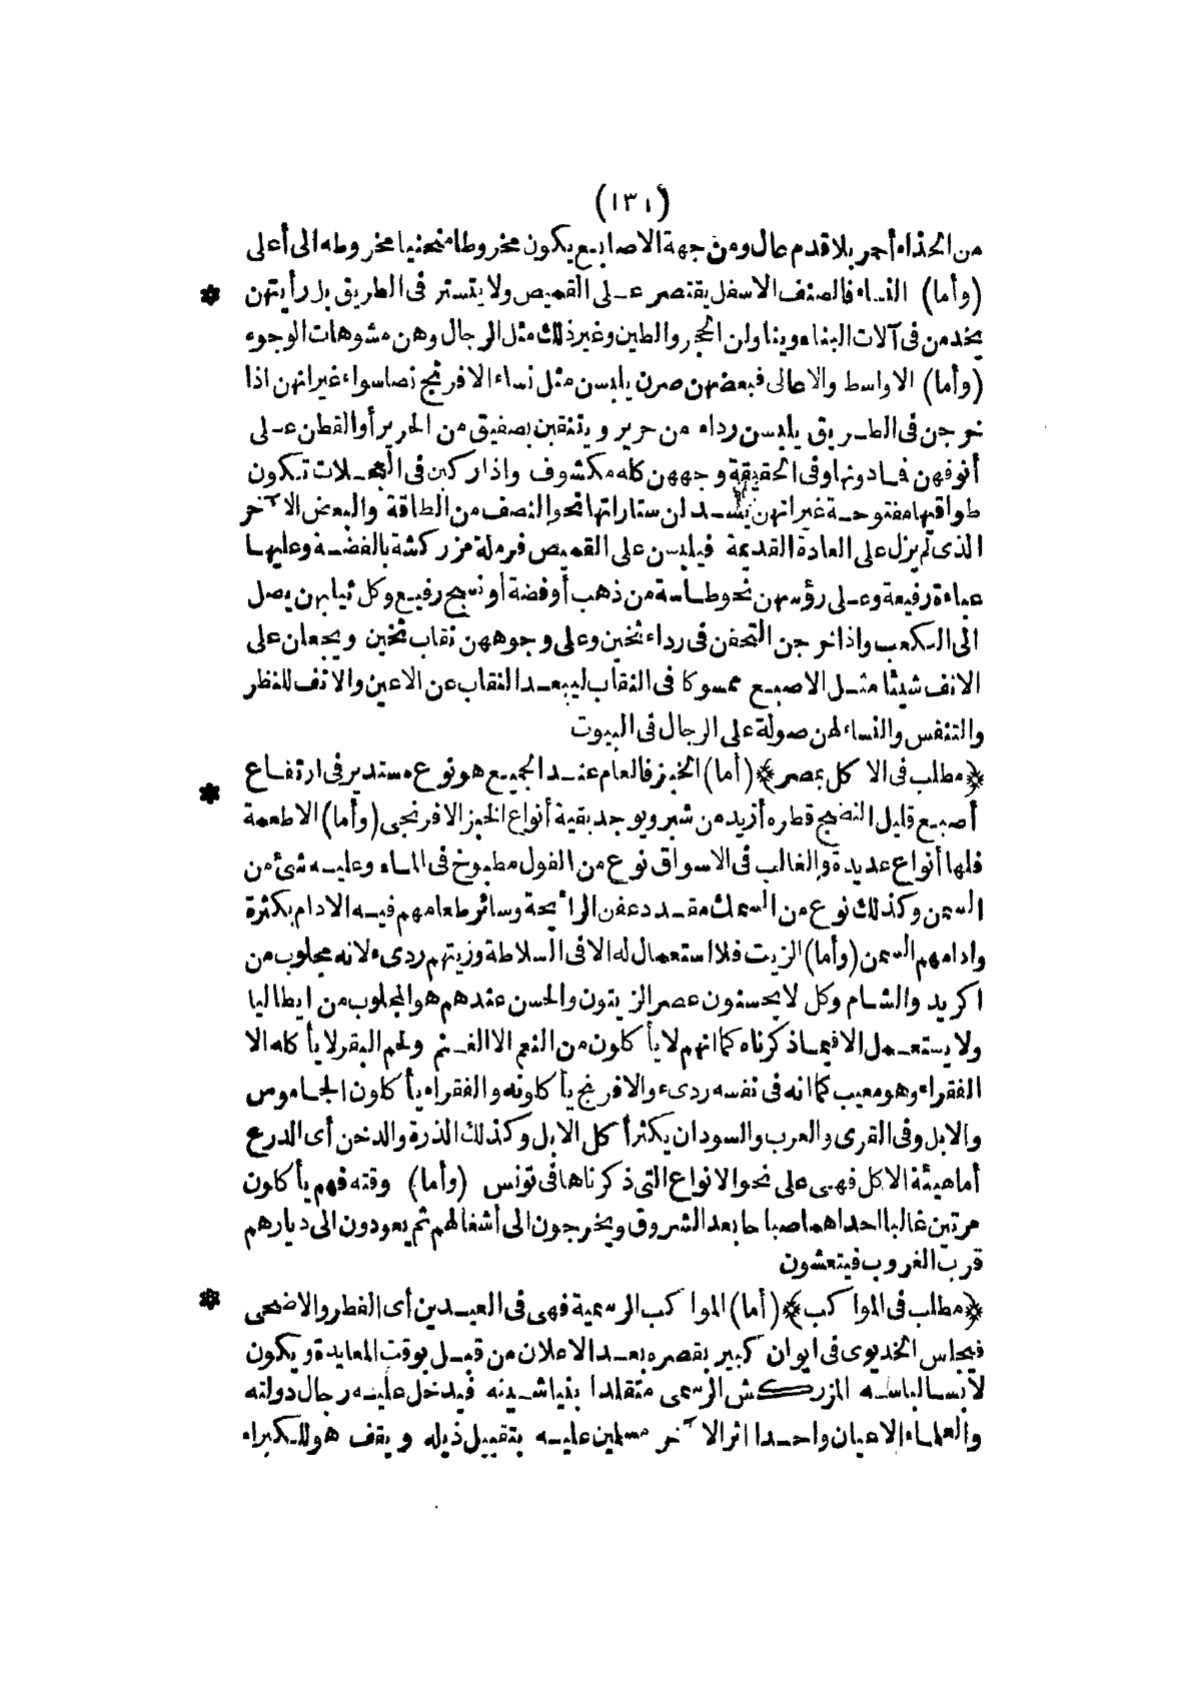 (١٣١)
من الحذاء أحمر بلا قدم عال ومن جهة الاصابع يكون مخروطا منحنيا مخروطه الى أعلى
(وأما) النساء فالصنف الاسفل يقتصر على القميص ولا يتستر فى الطريق بل رأيتهن *
يخدمن فى آلات البناء ويناولن الحجر والطين وغير ذلك مثل الرجال وهن مشوهات الوجوه
(وأما) الاواسط والاعالى فبعضهن صرن يلبسن مثل نساء الافرنج نصا سواء غير انهن اذا
خرجن فى الطريق يلبسن رداء من حرير ويتنقبن بصفيق من الحرير أو القطن على
أنوفهن فما دونها وفى الحقيقة وجههن كله مكشوف واذا ركبن فى العجلات تكون
طواقيها مفتوحة غير انهن يسدلن ستاراتها نحو النصف من الطاقة والبعض الآخر
الذى لم يزل على العادة القديمة فيلبسن على القميص فرملة مزركشة بالفضة وعليها
عباءة رفيعة وعلى رؤسهن نحو طاسة من ذهب أو فضة أو نسج رفيع وكل ثيابهن يصل
الى الكعب واذا خرجن التحفن فى رداء ثخين وعلى وجوههن نقاب ثخين ويجعلن على
الانف شيئا مثل الاصبع ممسوكا فى النقاب ليبعد النقاب عن الاعين والانف للنظر
والتنفس والنساء لهن صولة على الرجال فى البيوت
﴿مطلب فى الاكل بمصر﴾ (أما) الخبز فالعام عند الجميع هو نوع مستدير فى ارتفاع *
أصبع قليل النضج قطره أزيد من شبر ويوجد بقية أنواع الخبز الافرنجى (وأما) الاطعمة
فلها أنواع عديدة والغالب فى الاسواق نوع من الفول مطبوخ فى الماء وعليه شئ من
السمن وكذلك نوع من السمك مقدد عفن الرائحة وسائر طعامهم فيه الادام بكثرة
وادامهم السمن (وأما) الزيت فلا استعمال له الا فى السلاطة وزيتهم ردىء لانه مجلوب من
اكريد والشام وكل لا يحسنون عصر الزيتون والحسن عندهم هو المجلوب من ايطاليا
ولا يستعمل الا فيما ذكرناه كما انهم لا يأكلون من النعم الا الغنم ولحم البقر لا يأكله الا
الفقراء وهو معيب كما انه فى نفسه ردىء والافرنج يأكلونه والفقراء يأكلون الجاموس
والابل وفى القرى والعرب والسودان يكثر أكل الابل وكذلك الذرة والدخن أى الدرع
أما هيئة الاكل فهى على نحو الانواع التى ذكرناها فى تونس (وأما) وقته فهم يأكلون
مرتين غالبا احداهما صباحا بعد الشروق ويخرجون الى أشغالهم ثم يعودون الى ديارهم
قرب الغروب فيتعشون
﴿مطلب فى المواكب﴾ (أما) المواكب الرسمية فهى فى العيدين أى الفطر والاضحى *
فيجلس الخديوى فى ايوان كبير بقصره بعد الاعلان من قبل بوقت المعايدة ويكون
لابسا لباسه المزركش الرسمى متقلدا بنياشينه فيدخل عليه رجال دولته
والعلماء الاعيان واحدا اثر الآخر مسلمين عليه بتقبيل ذيله ويقف هو للكبراء